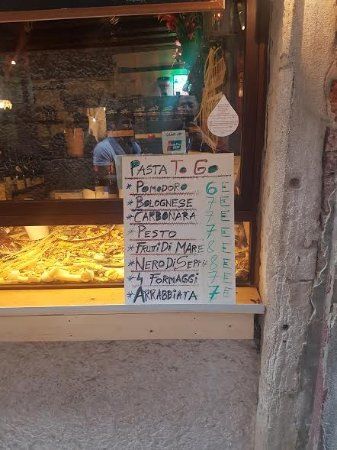 PASTA To Go
* POMODORO 6 E
* BOLOGNESE 7 E
* CARBONARA 7 E
* PESTO 7 E
* FRUTI Di MARE 8 E
* NERO Di 8 E
* 4 FORMAGGI 7 E
* ARRABBIATA 7 E